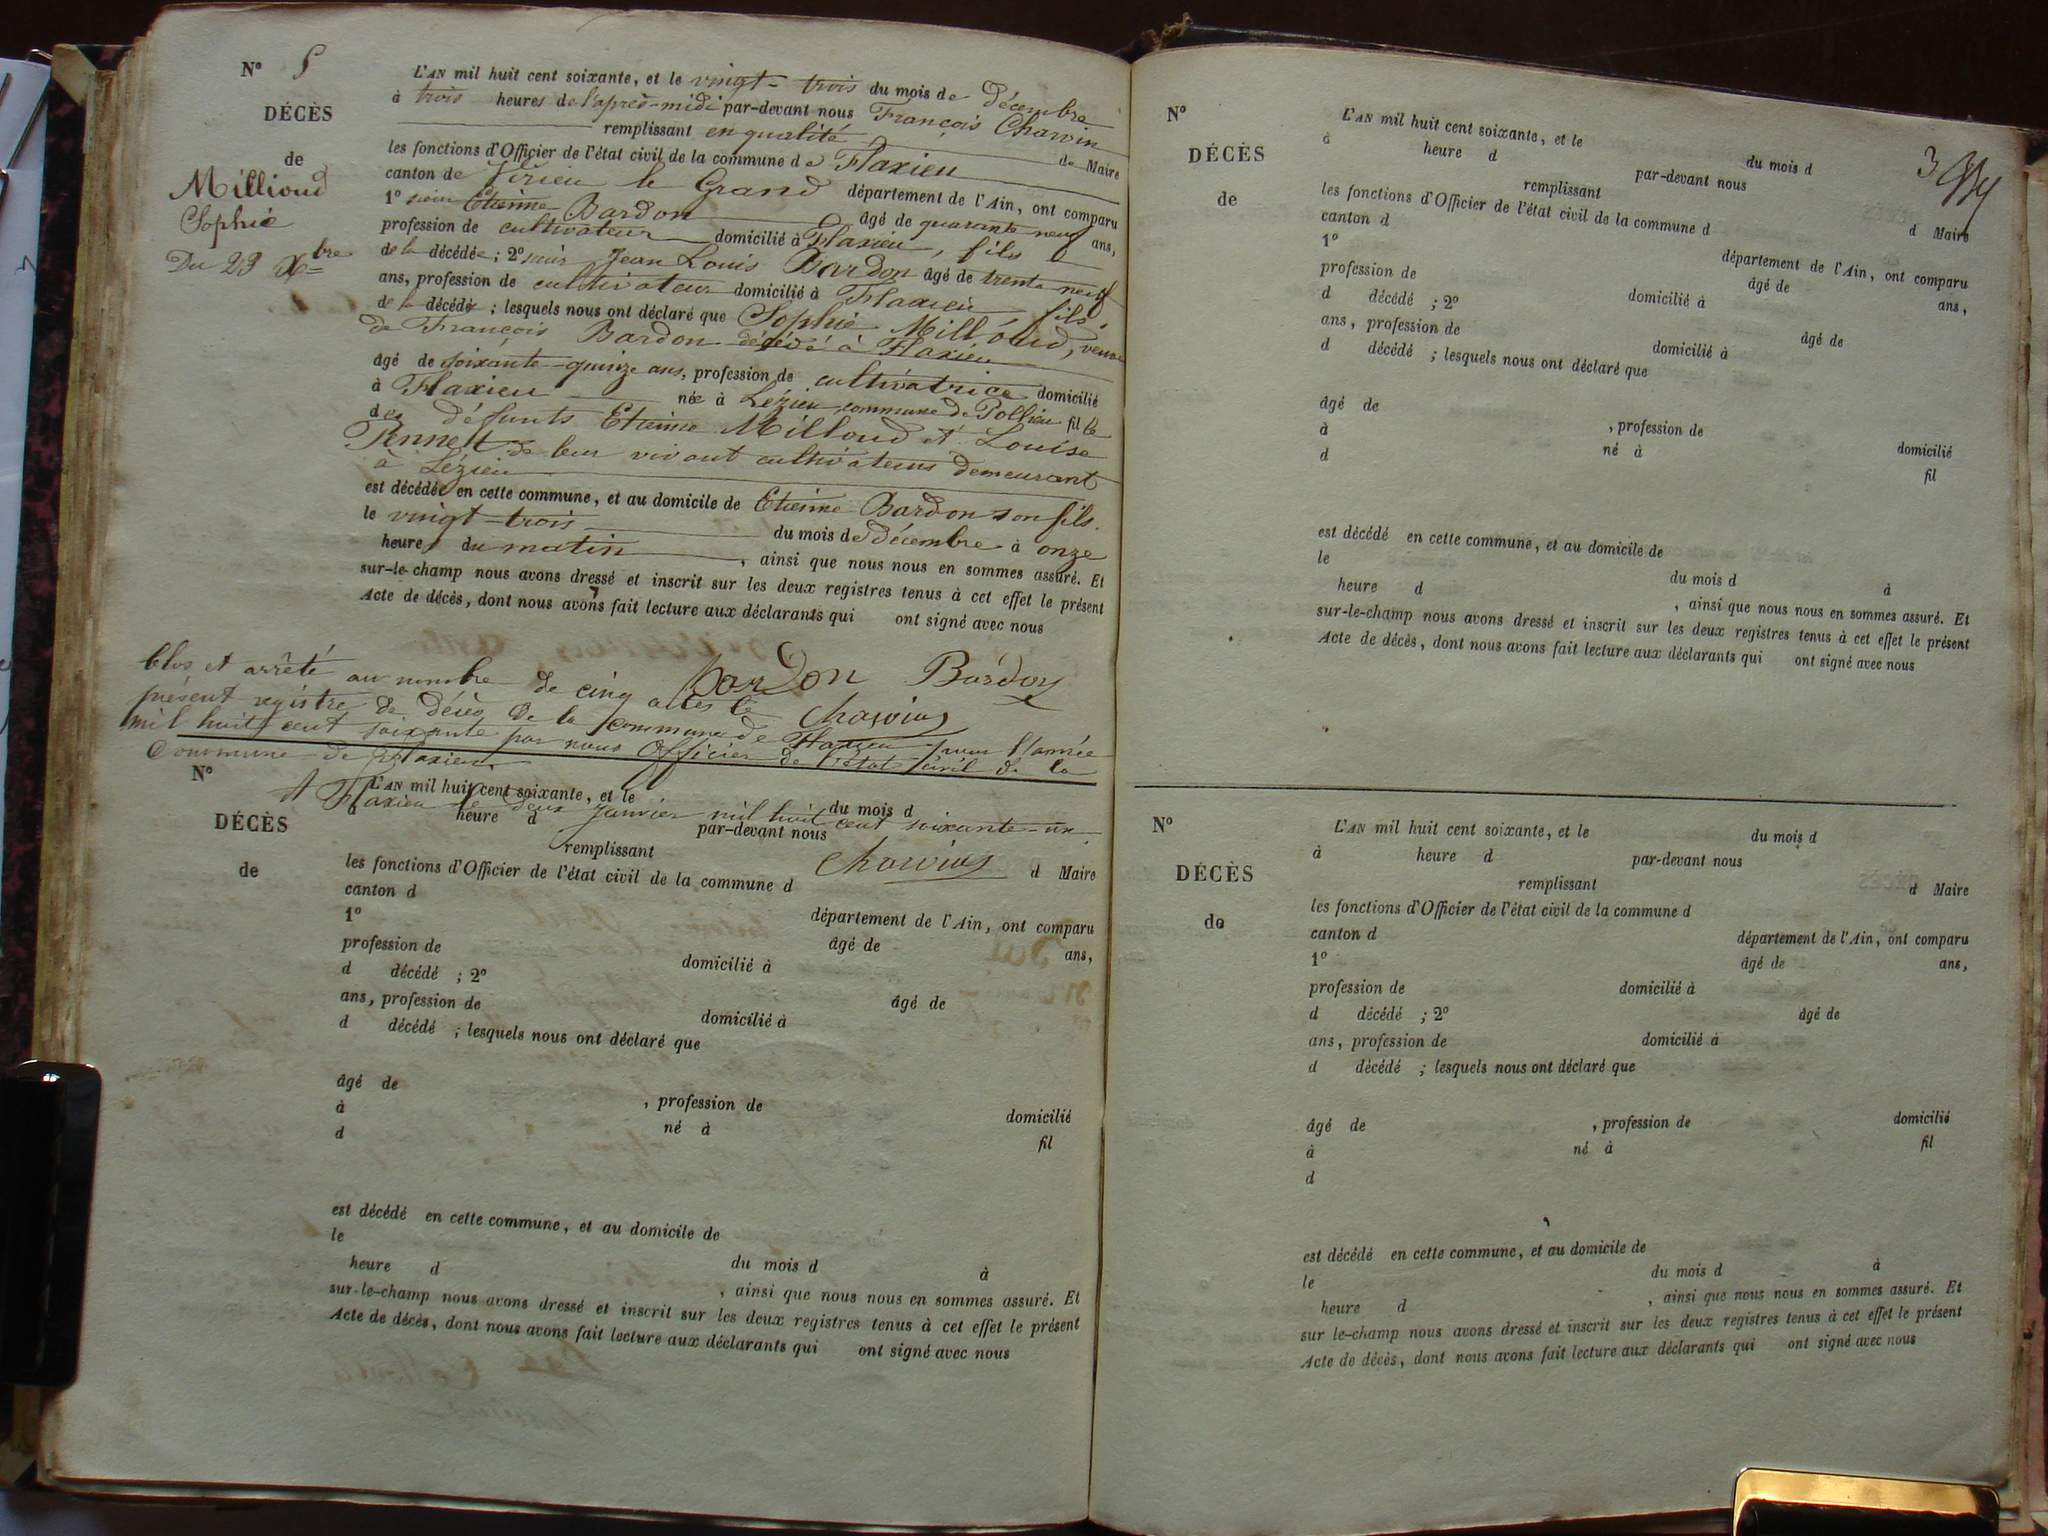 N° 5
DÉCÈS
de
Millioud
Sophie
Du 23 Xbre
L'AN mil huit cent soixante, et le vingt-trois du mois de Décembre
à trois heures de l'après-midi par-devant nous François Charvin
remplissant en qualité de Maire
les fonctions d'Officier de l'état civil de la commune de Flaxieu
canton de Virieu le Grand département de l'Ain, ont comparu
1° sieur Etienne Bardon âgé de quarante neuf ans,
profession de cultivateur domicilié à Flaxieu, fils
de la décédée; 2° sieur Jean Louis Bardon âgé de trente-neuf
ans, profession de cultivateur domicilié à Flaxieu fils
de la décédée; lesquels nous ont déclaré que Sophie Millioud, veuve
de François Bardon décédé à Flaxieu
âgé de soixante-quinze ans, profession de cultivatrice domicilié
à Flaxieu née à Lézieu commune de Pollieu fille
des défunts Etienne Millioud et Louise
Pennet de leur vivant cultivateurs demeurant
à Lézieu
est décédée en cette commune, et au domicile de Etienne Bardon son fils.
le vingt-trois du mois de Décembre à onze
heures du matin, ainsi que nous nous en sommes assuré. Et
sur-le-champ nous avons dressé et inscrit sur les deux registres tenus à cet effet le présent
Acte de décès, dont nous avons fait lecture aux déclarants qui ont signé avec nous
Bardon Bardon
Charvin
Clos et arrêté au nombre de cinq actes le
présent registre de décès de la commune de Flaxieu pour l'année
mil huit cent soixante par nous Officier de l'état civil de la
Commune de Flaxieu.
A Flaxieu le deux Janvier mil huit cent soixante-un
Charvin
N°
DÉCÈS
de
L'AN mil huit cent soixante, et le du mois d
à heure d par-devant nous
remplissant d Maire
les fonctions d'Officier de l'état civil de la commune d
canton d département de l'Ain, ont comparu
1° âgé de ans,
profession de domicilié à
d décédé ; 2° âgé de
ans, profession de domicilié à
d décédé ; lesquels nous ont déclaré que
âgé de , profession de domicilié
à né à fil
d
est décédé en cette commune, et au domicile de
le du mois d à
heure d , ainsi que nous nous en sommes assuré. Et
sur-le-champ nous avons dressé et inscrit sur les deux registres tenus à cet effet le présent
Acte de décès, dont nous avons fait lecture aux déclarants qui ont signé avec nous
3
N°
DÉCÈS
de
L'AN mil huit cent soixante, et le du mois d
à heure d par-devant nous
remplissant d Maire
les fonctions d'Officier de l'état civil de la commune d
canton d département de l'Ain, ont comparu
1° âgé de ans,
profession de domicilié à
d décédé ; 2° âgé de
ans, profession de domicilié à
d décédé ; lesquels nous ont déclaré que
âgé de , profession de domicilié
à né à fil
d
est décédé en cette commune, et au domicile de
le du mois d à
heure d , ainsi que nous nous en sommes assuré. Et
sur-le-champ nous avons dressé et inscrit sur les deux registres tenus à cet effet le présent
Acte de décès, dont nous avons fait lecture aux déclarants qui ont signé avec nous
N°
DÉCÈS
de
L'AN mil huit cent soixante, et le du mois d
à heure d par-devant nous
remplissant d Maire
les fonctions d'Officier de l'état civil de la commune d
canton d département de l'Ain, ont comparu
1° âgé de ans,
profession de domicilié à
d décédé ; 2° âgé de
ans, profession de domicilié à
d décédé ; lesquels nous ont déclaré que
âgé de , profession de domicilié
à né à fil
d
est décédé en cette commune, et au domicile de
le du mois d à
heure d , ainsi que nous nous en sommes assuré. Et
sur le-champ nous avons dressé et inscrit sur les deux registres tenus à cet effet le présent
Acte de décès, dont nous avons fait lecture aux déclarants qui ont signé avec nous